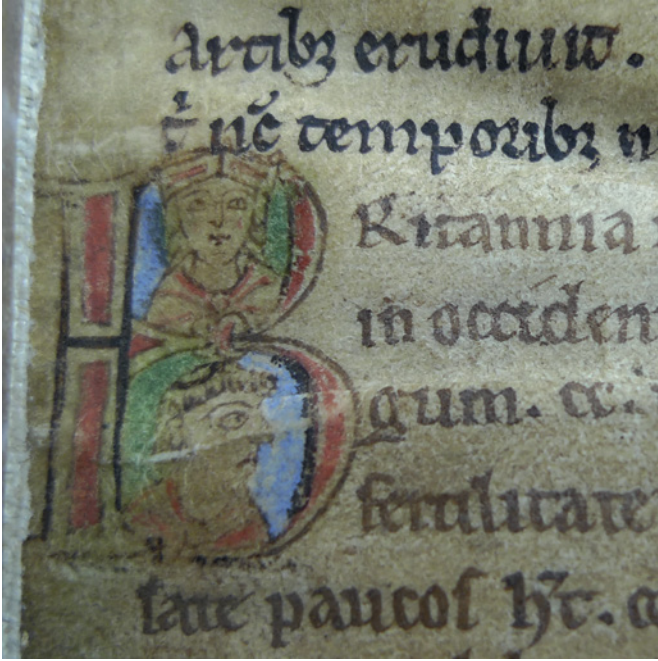 Artibꝫ erudiuit.
t̾ nc̄ temporibꝫ
BRitannia
in occiden
gum. cc.
fertilitate
ſate paucoſ h̅t.